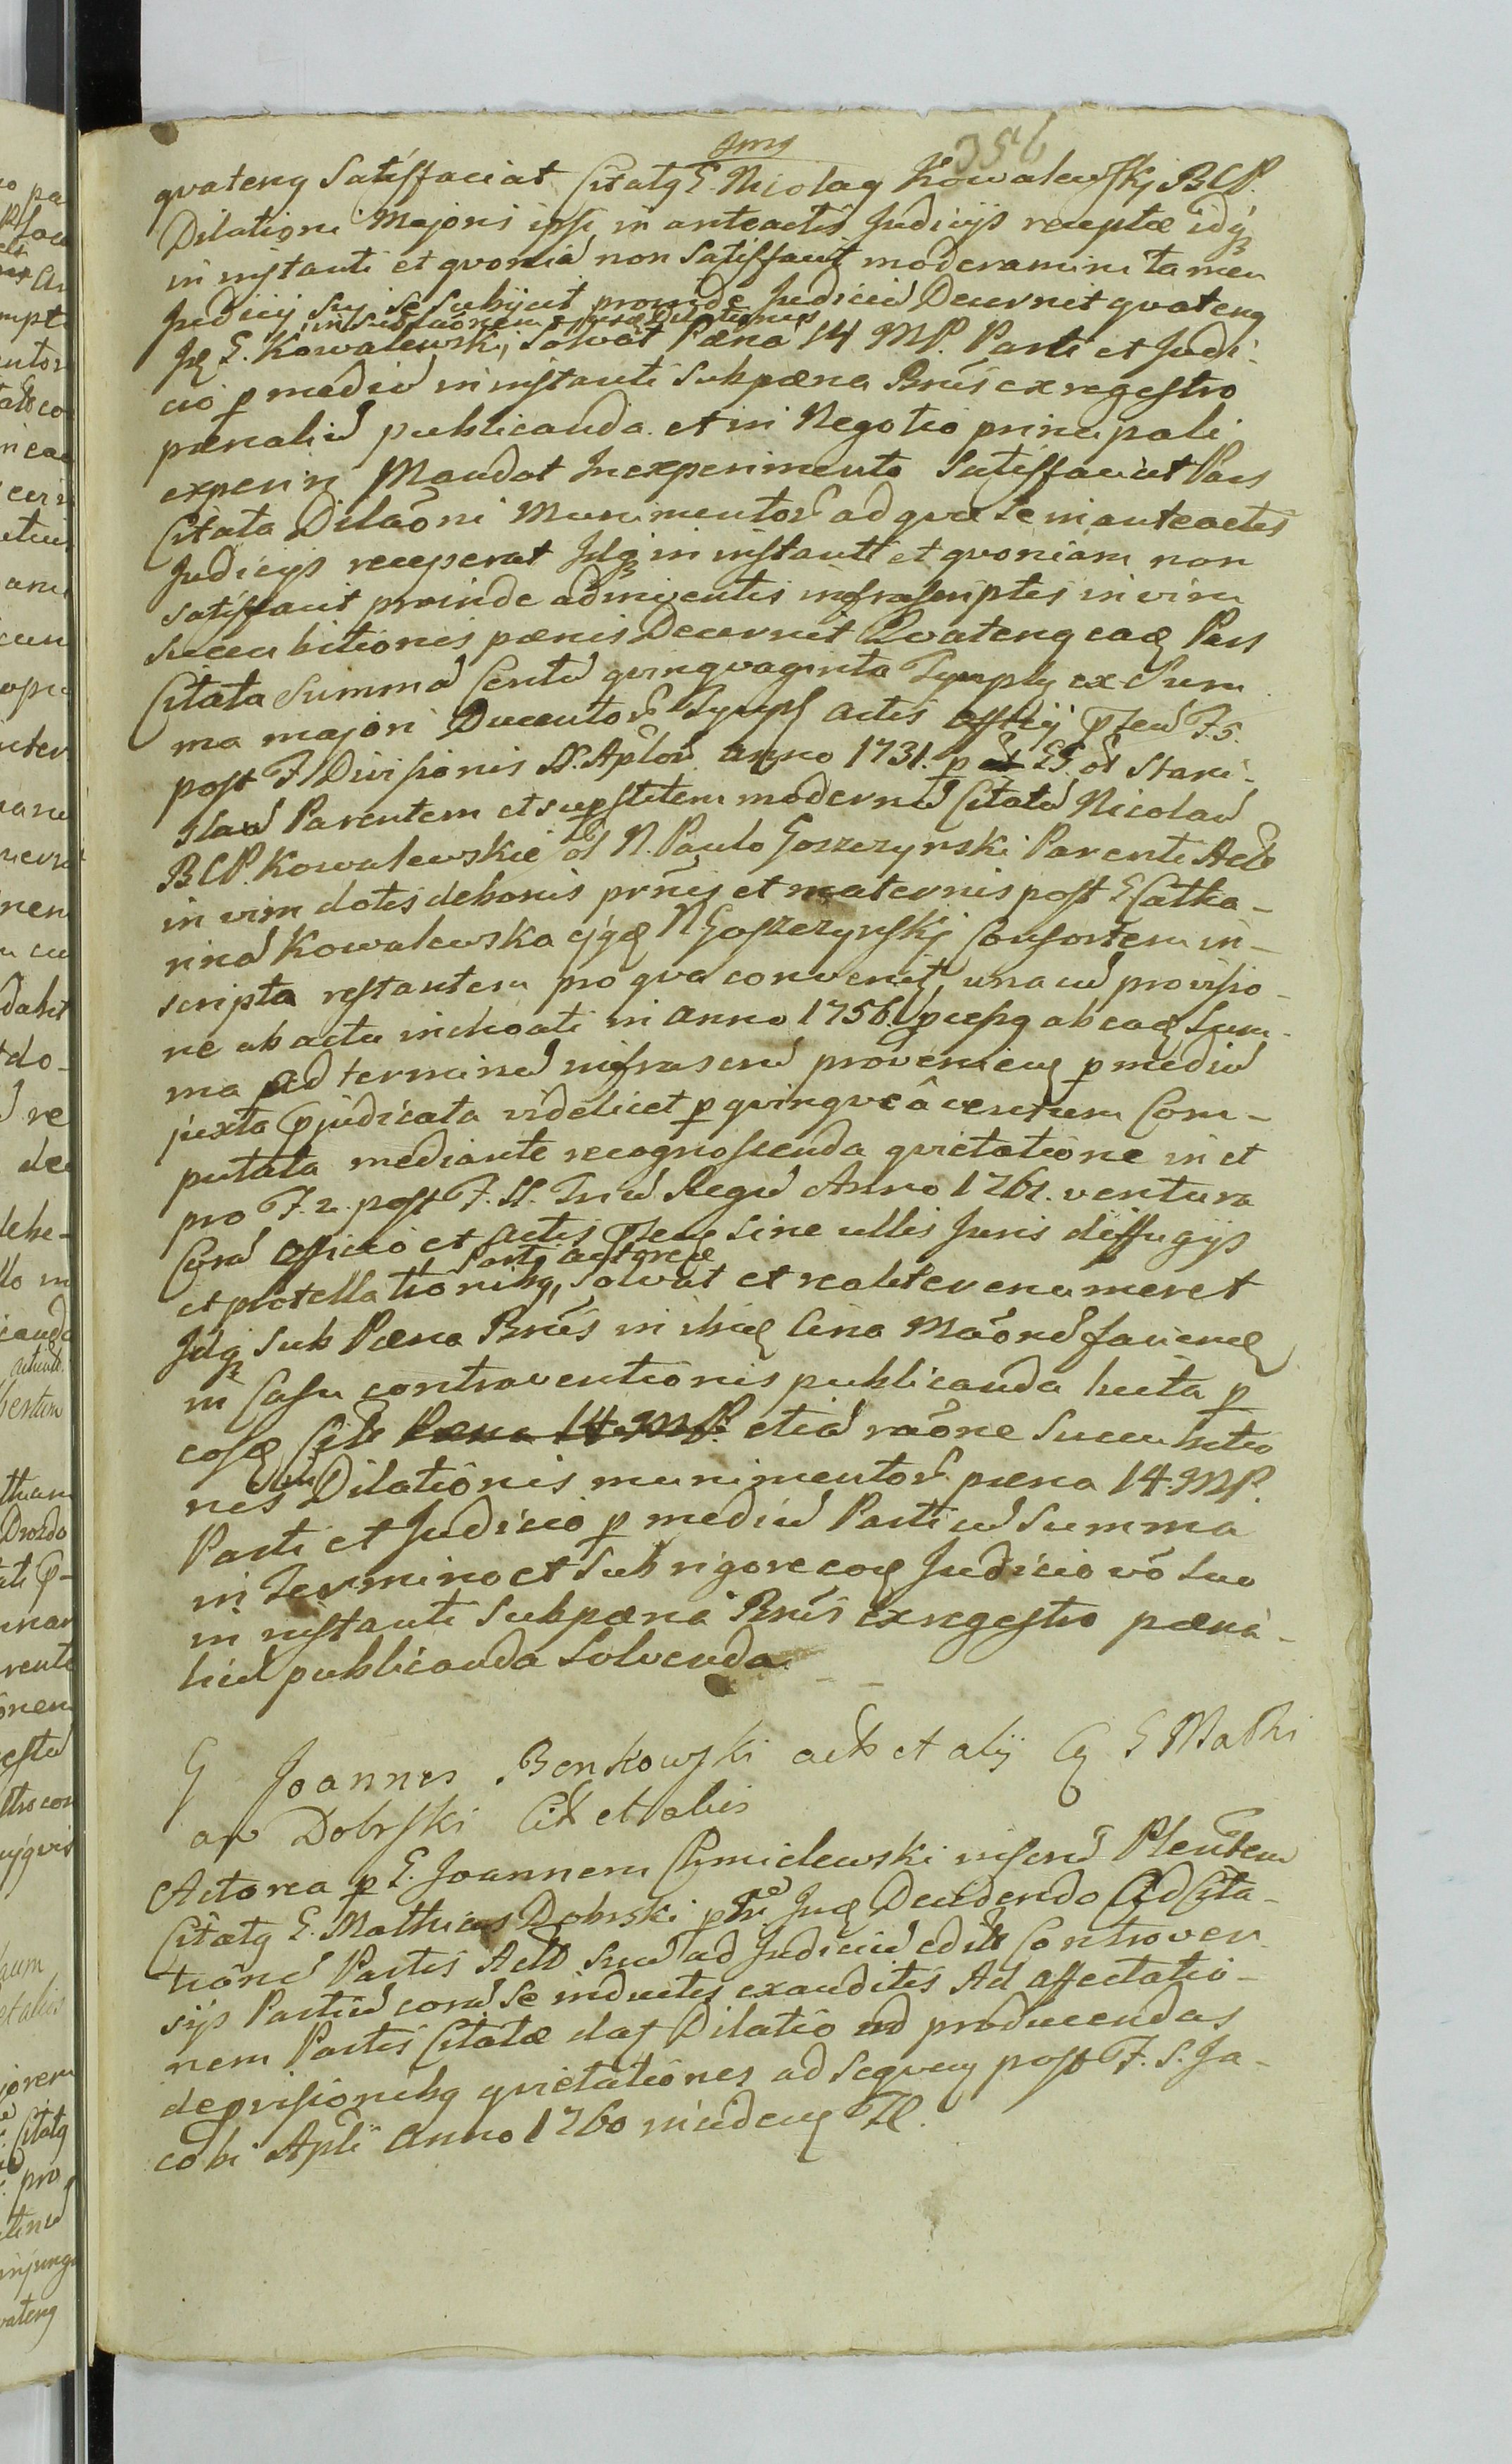 356
Jms
qvatenq Satisfaciat Citatq G. Nicolaq Kowalewskj BCP.
Dilationi Majori ipsi in anteactis Judicijs receptæ idq
in instanti et qvoniã non Satisfacit moderamini tamen
Judicij se subijcit proinde Judiciũ Decernit qvatenq
Jd G. Kowalewski, Solvat Pæna 14 MP. Parti et Judi-
cio p mediũ in instanti Sub pæna Bnis ex regestro
pænaliũ publicanda et in Negotio principali
experiri Mandat In experimento Satisfaciat Pars
Citata Dilaõni Munimentor ad qvæ se in anteactis
Judicijs receperat Idq in instanti et qvoniam non
satisfacit proinde admissentis infrascriptis in vim
succubitionis pænis Decernit Qvatenq eadē Pars
Citata Summã Centũ qvinqvaginta Tynph ex Sum
ma majori Ducentor Tynph actis officij F. 5.
post F. Divisionis SS. Aplor anno 1731. p GG. ol Stani-
slaũ Parentem et supstitem modernũ Citatũ Nicolaũ
BCP. Kowalewskie ol N. Paulo Goszczynski Parenti Acto
in vim dotis de bonis prnis et maternis post G Catha-
rinã Kowalewska N. Goszczynskj Consortem in-
scripta restantem pro qva convenit, una cũ provisio-
ne ab actu inchoati in anno 1756 ab eadē Sum-
ma ad terminũ infrascrũ provenien p mediũ
juxta pjudicata videlicet p qvinqve â centum Com-
putata mediante recognoscenda qvietatione in et
pro F. 2. post F. SS. Triũ Regũ Anno 1761. ventura
Corã officio et actis sine ullis Juris diffugijs
Parti actoreæ
et protellationibq, Solvat et realiter enumeret
Idq sub Pæna Bnis in Maõnẽ
in Casu contraventionis publicanda lucta p
Cit Pæna 14 MP. etiã raõne Succubitio
nis Dilationis munimentor pæna 14 MP.
Parti et Judicio p mediũ Parti cũ Summa
in Termino et sub rigore Judicio vo suo
in instanti sub pæna Bnis ex regestro pæna-
liũ publicanda Solvenda
G Joannes Benkowski act et alij G Mathi
as Dobrski Cit et alies
Actorea p G. Joannem Chmielewski Plentem
Citatq G. Mathias Dobrski Decidendo Ad Cita-
tionẽ Partis Act ad Judiciũ Controver
sijs Partiũ corã se inductis exauditis Ad affectatio-
nem Partis Citatæ dat Dilatio ad producendas
de pvisionibq qvietationes ad seqven post F. S. Ja-
cobi Apli Anno 1760